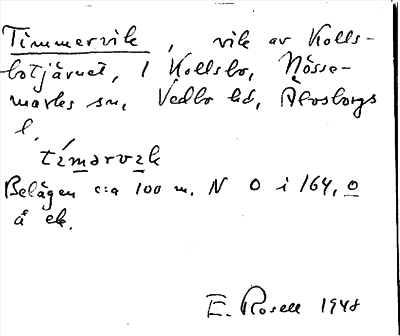 Timmervik, vik av Kolls-
botjärnet, 1 Kollsbo, Nösse-
marks sn, Vedbo hd, Älvsborgs
l.
tímərvɪk
Belägen c:a 100 m. N O i 164, o
å ek.
E. Rosell 1948